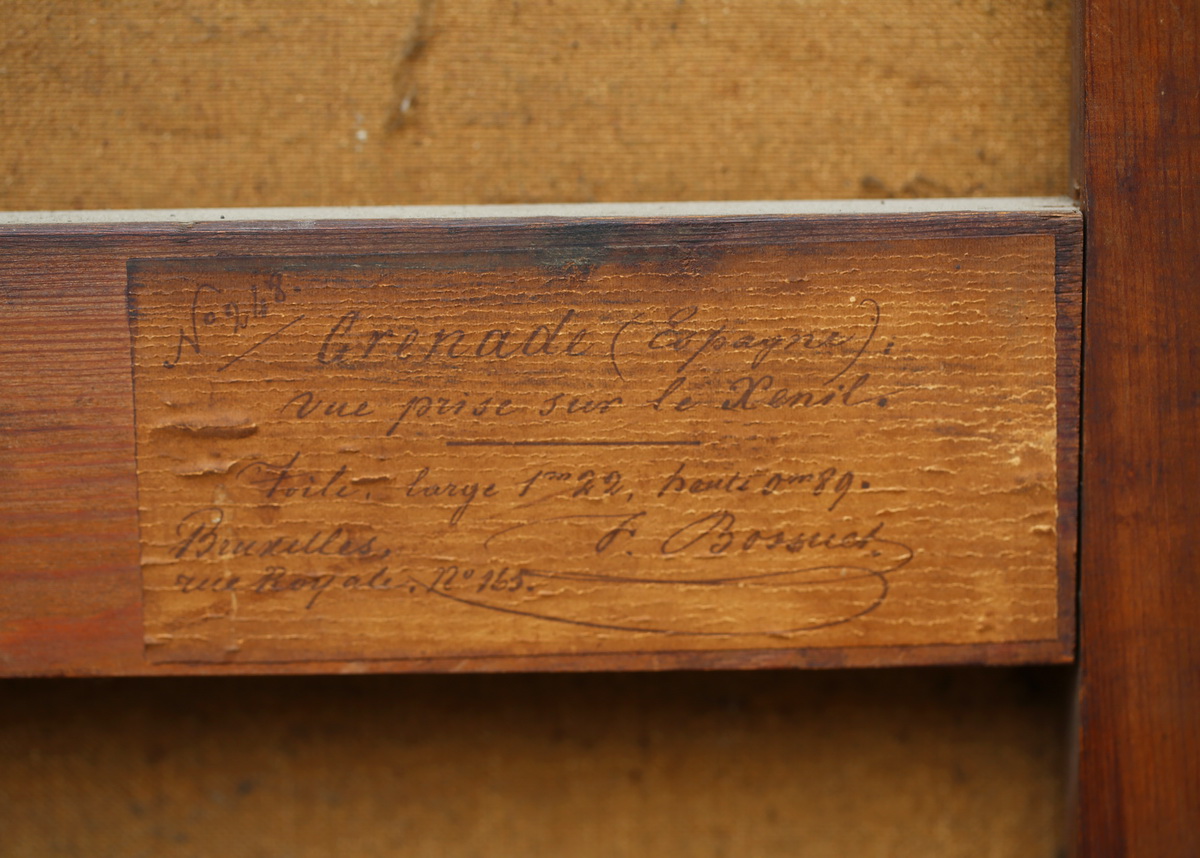 No 248.
Grenade (Espagne).
vue prise sur le Xenil.
Toile, large 1m 22, haute 0m 89.
F. Bossuet.
Bruxelles,
rue Royale, No 165.